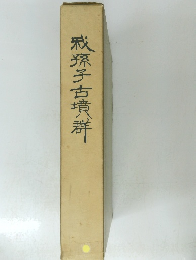 我孫子古墳群